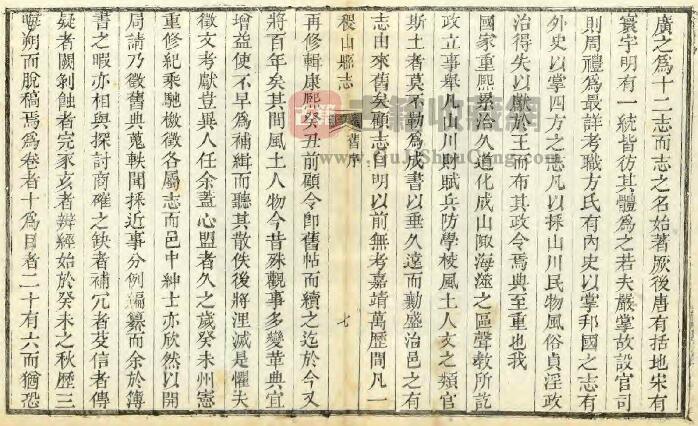 廣之爲十二志而志之名始著厥後唐有括地宋有
寰宇明有一統皆彷其體爲之若夫嚴掌故設官司
則周禮爲最詳考職方氏有內史以掌邦國之志有
外史以掌四方之志凡以採山川民物風俗貞淫政
治得失以獻於王而布其政令焉典至重也我
國家重熙累治久道化成山陬海澨之區聲教所訖
政立事舉凡山川財賦兵防學校風土人文之類官
斯土者莫不勒爲成書以垂久遠而勷盛治邑之有
志由來舊矣顧志自明以前無考嘉靖萬歷間凡一
稷山縣志
舊序
七
再修輯康熙癸丑前顧令卽舊帖而續之迄於今又
將百年矣其間風土人物今昔殊觀事多變革典宜
增益使不早爲補緝而聽其散佚後將湮滅是懼夫
徵文考獻豈異人任余蓋心盟者久之歲癸未州憲
重修紀乘馳檄徵各屬志而邑中紳士亦欣然以開
局請乃徵舊典蒐軼聞採近事分例編纂而余於簿
書之暇亦相與探討商確之缺者補冗者芟信者傳
疑者闕剝蝕者完豕亥者辨經始於癸未之秋歷三
晦朔而脫稿焉爲卷者十爲目者二十有六而猶恐
古籍收藏網
www.GuJiShouCang.com